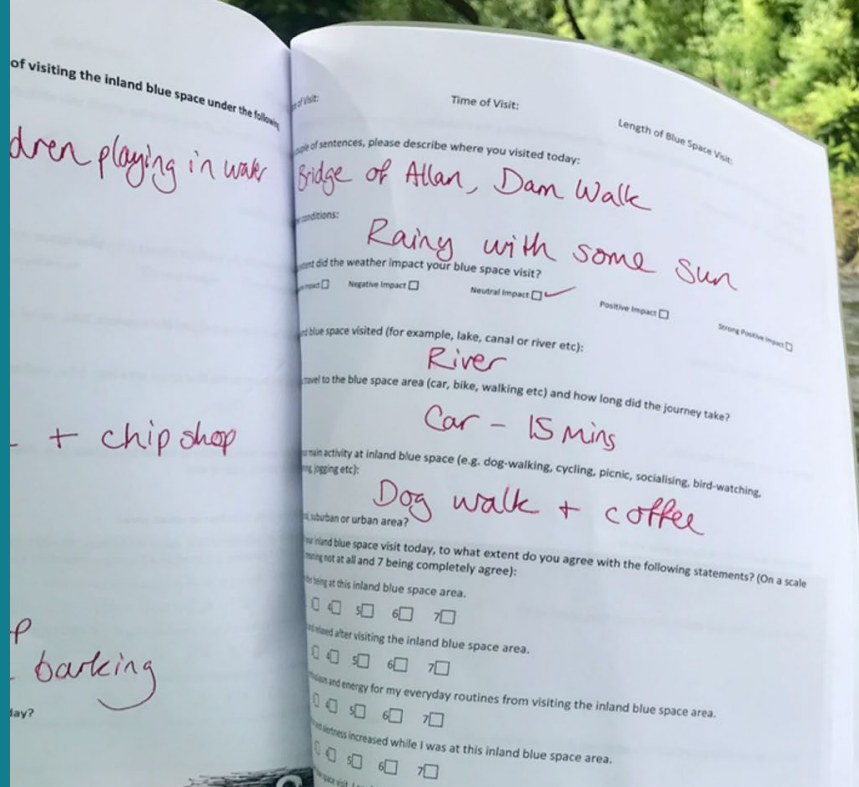 of visiting the inland blue space under the following
dren playing in water
+ chip shop
barking
day?
of Visit:
Time of Visit:
Length of Blue Space Visit:
of sentences, please describe where you visited today:
Bridge of Allan, Dam Walk
conditions:
Rainy with some sun
did the weather impact your blue space visit?
Impact Negative Impact Neutral Impact Positive Impact Strong Positive Impact
blue space visited (for example, lake, canal or river etc):
River
travel to the blue space area (car, bike, walking etc) and how long did the journey take?
Car - 15 mins
main activity at inland blue space (e.g. dog-walking, cycling, picnic, socialising, bird-watching,
jogging etc):
Dog walk + coffee
suburban or urban area?
inland blue space visit today, to what extent do you agree with the following statements? (On a scale
not at all and 7 being completely agree):
being at this inland blue space area.
4 5 6 7
relaxed after visiting the inland blue space area.
4 5 6 7
and energy for my everyday routines from visiting the inland blue space area.
4 5 6 7
alertness increased while I was at this inland blue space area.
4 5 6 7
space visit, I